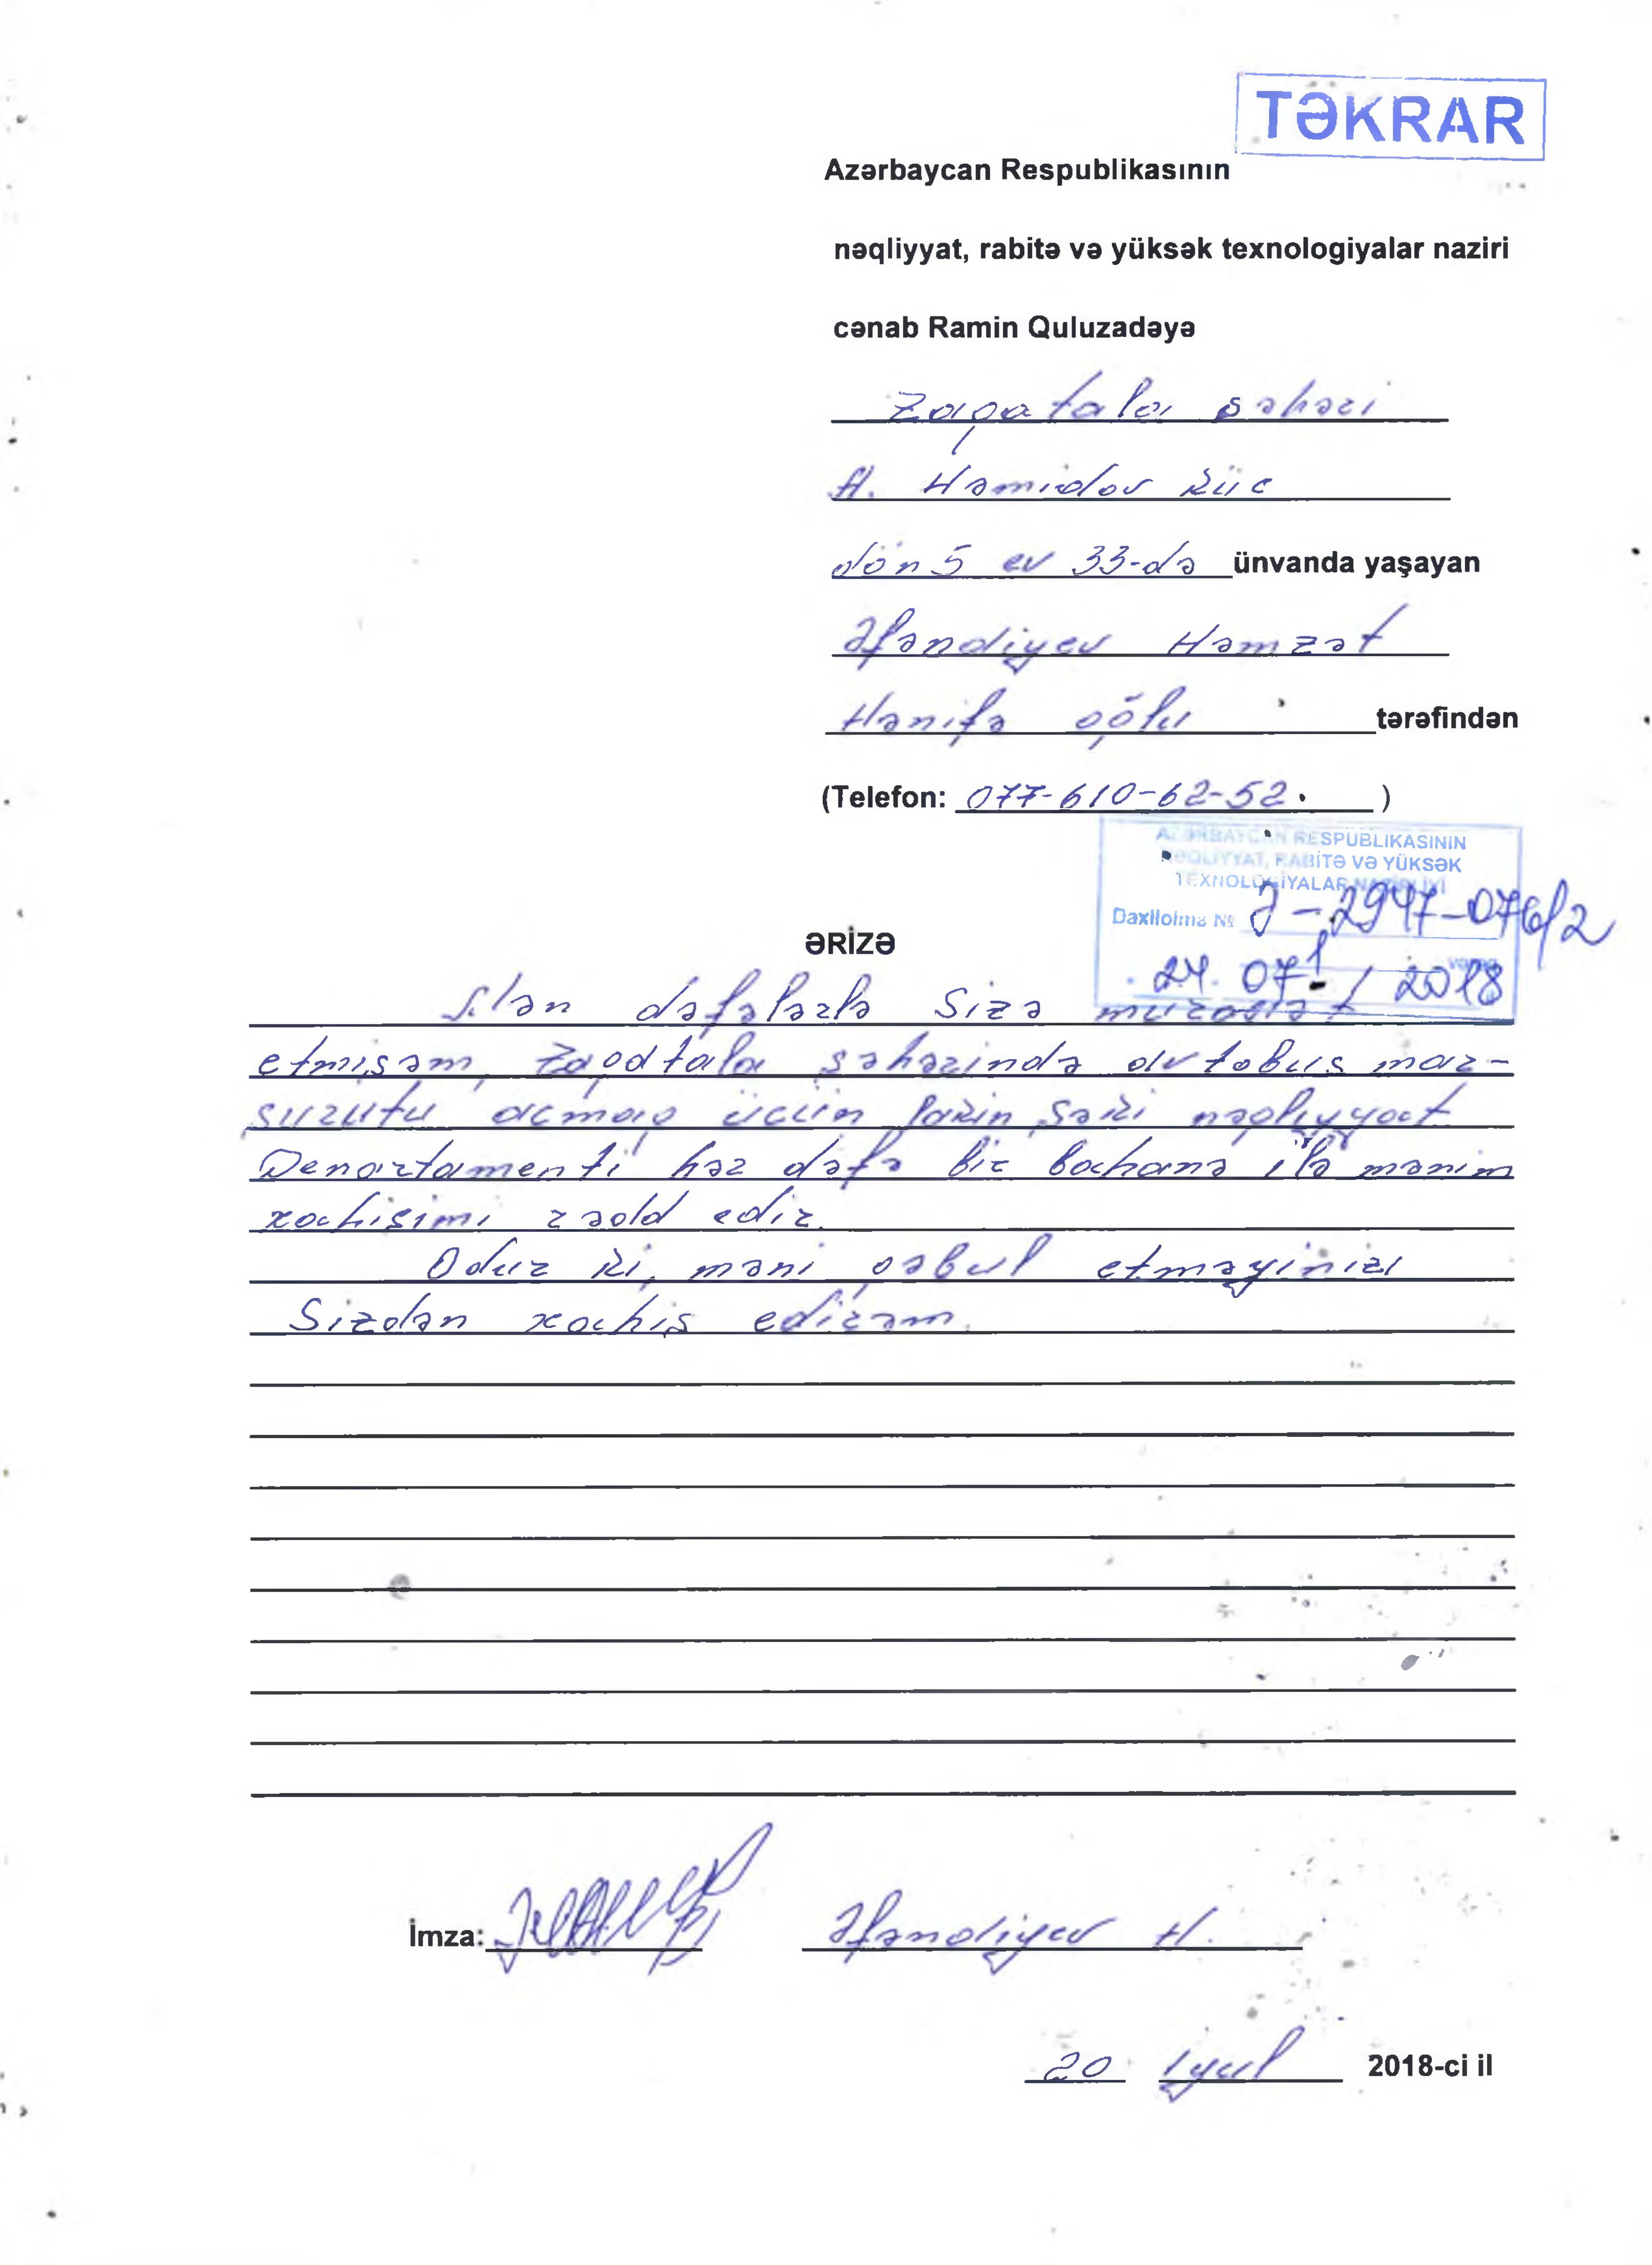 TƏKRAR
Azərbaycan Respublikasının
nəqliyyat, rabitə və yüksək texnologiyalar naziri
cənab Ramin Quluzadəyə
Zaqatala şəhəri
A. Həmidov küç
dön 5 ev 33-də ünvanda yaşayan
Əfəndiyev Həmzət
Hənifə oğlu tərəfindən
(Telefon: 077-610-62-52. )
AZƏRBAYCAN RESPUBLIKASININ
NƏQLİYYAT, RABİTƏ VƏ YÜKSƏK
TEXNOLOGİYALAR NAZİRLİYİ
Daxilolma № Ə-2947-076/2
vərəq
24. 07 / 2018
ƏRİZƏ
Mən dəfələrlə Sizə muraciət
etmişəm, Zaqatala şəhərində avtobus mar-
şurutu açmaq üçün lakin Şəki nəqliyyat
Departamenti hər dəfə bir bahanə ilə mənim
xahişimi rədd edir.
Odur ki, məni qəbul etməyinizi
Sizdən xahiş edirəm.
İmza: Əfəndiyev H.
20 iyul 2018-ci il